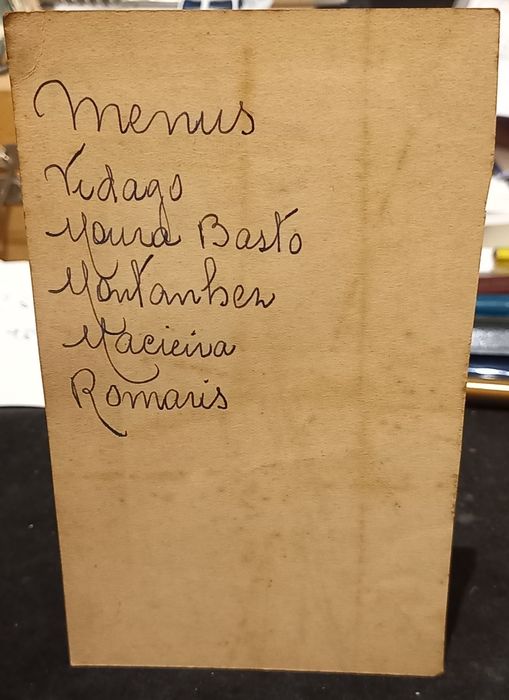 Menus
Vidago
Moura Basto
Montanhez
Macieira
Romaris